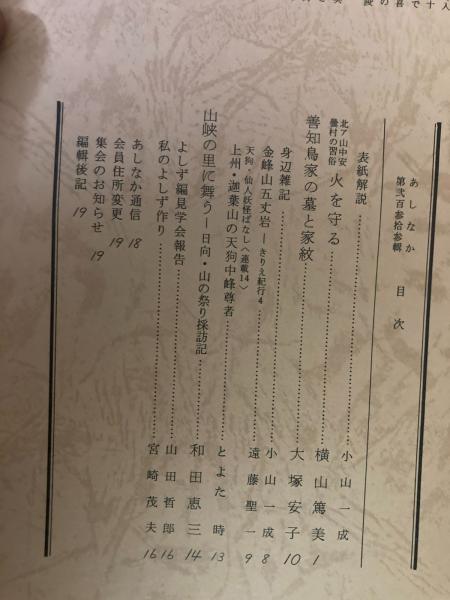 あしなか
第弐百参拾参輯 目次
表紙解説 小山一成
北ア山中安曇村の習俗 火を守る 横山篤美 1
善知鳥家の墓と家紋 大塚安子 10
身辺雑記 小山一成 8
金峰山五丈岩―きりえ紀行4 遠藤聖一 9
天狗・仙人妖怪ばなし〈連載14〉
上州・迦葉山の天狗中峰尊者 とよた時 13
山峡の里に舞う―日向・山の祭り採訪記 和田恵三 14
よしず編見学会報告 山田哲郎 16
私のよしず作り 宮崎茂夫 16
あしなか通信 18
会員住所変更 19
集会のお知らせ 19
編輯後記 19